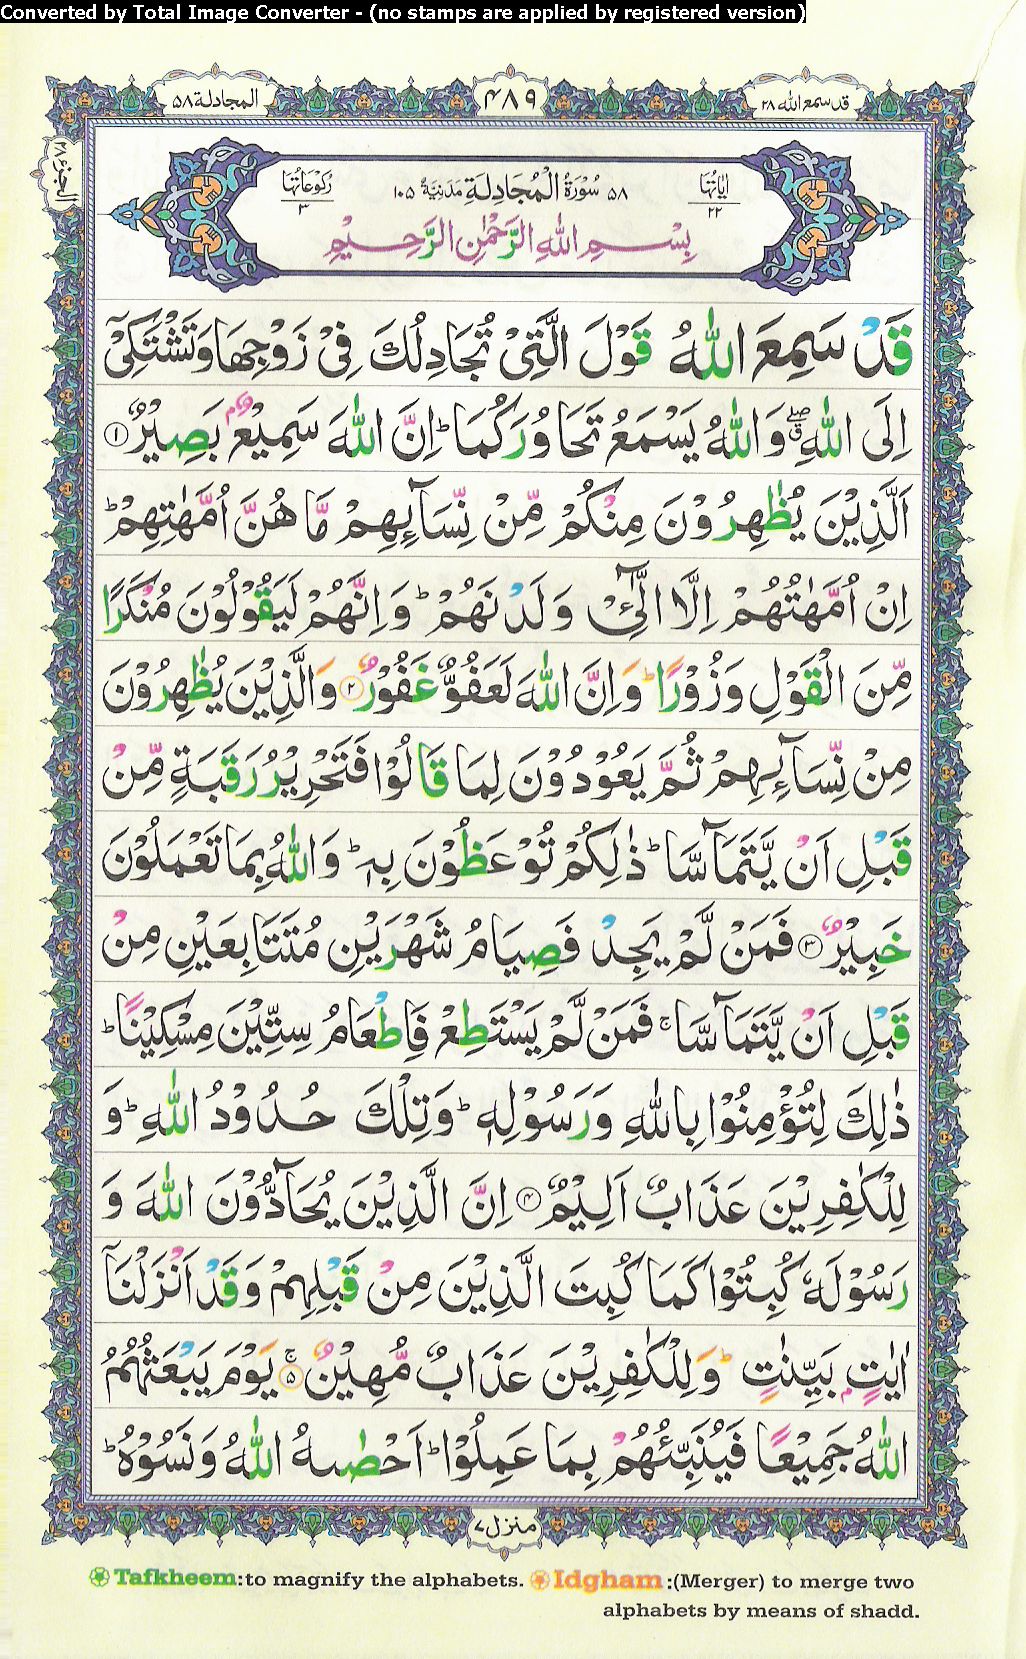 Converted by Total Image Converter - (no stamps are applied by registered version)
قد سمع الله ۲۸
۴۸۹
المجادلة ۵۸
الجزء ۲۸
اٰیَاتُهَا ۲۲
۵۸ سُوْرَةُ الْمُجَادِلَةِ مَدَنِیَّةٌ ۱۰۵
رُكُوْعَاتُهَا ۳
بِسْمِ اللّٰهِ الرَّحْمٰنِ الرَّحِیْمِ
قَدْ سَمِعَ اللّٰهُ قَوْلَ الَّتِیْ تُجَادِلُكَ فِیْ زَوْجِهَا وَتَشْتَكِیْۤ
اِلَی اللّٰهِ ۖق وَاللّٰهُ یَسْمَعُ تَحَاوُرَكُمَا ؕ اِنَّ اللّٰهَ سَمِیْعٌۢ بَصِیْرٌ ۱
اَلَّذِیْنَ یُظٰهِرُوْنَ مِنْكُمْ مِّنْ نِّسَآىِٕهِمْ مَّا هُنَّ اُمَّهٰتِهِمْ ؕ
اِنْ اُمَّهٰتُهُمْ اِلَّا الّٰٓـِٔیْ وَلَدْنَهُمْ ؕ وَاِنَّهُمْ لَیَقُوْلُوْنَ مُنْكَرًا
مِّنَ الْقَوْلِ وَزُوْرًا ؕ وَاِنَّ اللّٰهَ لَعَفُوٌّ غَفُوْرٌ ۲ وَالَّذِیْنَ یُظٰهِرُوْنَ
مِنْ نِّسَآىِٕهِمْ ثُمَّ یَعُوْدُوْنَ لِمَا قَالُوْا فَتَحْرِیْرُ رَقَبَةٍ مِّنْ
قَبْلِ اَنْ یَّتَمَآسَّا ؕ ذٰلِكُمْ تُوْعَظُوْنَ بِهٖ ؕ وَاللّٰهُ بِمَا تَعْمَلُوْنَ
خَبِیْرٌ ۳ فَمَنْ لَّمْ یَجِدْ فَصِیَامُ شَهْرَیْنِ مُتَتَابِعَیْنِ مِنْ
قَبْلِ اَنْ یَّتَمَآسَّا ۚ فَمَنْ لَّمْ یَسْتَطِعْ فَاِطْعَامُ سِتِّیْنَ مِسْكِیْنًا ؕ
ذٰلِكَ لِتُؤْمِنُوْا بِاللّٰهِ وَرَسُوْلِهٖ ؕ وَتِلْكَ حُدُوْدُ اللّٰهِ ؕ وَ
لِلْكٰفِرِیْنَ عَذَابٌ اَلِیْمٌ ۴ اِنَّ الَّذِیْنَ یُحَآدُّوْنَ اللّٰهَ وَ
رَسُوْلَهٗ كُبِتُوْا كَمَا كُبِتَ الَّذِیْنَ مِنْ قَبْلِهِمْ وَقَدْ اَنْزَلْنَاۤ
اٰیٰتٍۭ بَیِّنٰتٍ ؕ وَلِلْكٰفِرِیْنَ عَذَابٌ مُّهِیْنٌ ۚ ۵ یَوْمَ یَبْعَثُهُمُ
اللّٰهُ جَمِیْعًا فَیُنَبِّئُهُمْ بِمَا عَمِلُوْا ؕ اَحْصٰىهُ اللّٰهُ وَنَسُوْهُ ؕ
منزل ۷
Tafkheem: to magnify the alphabets. Idgham: (Merger) to merge two
alphabets by means of shadd.